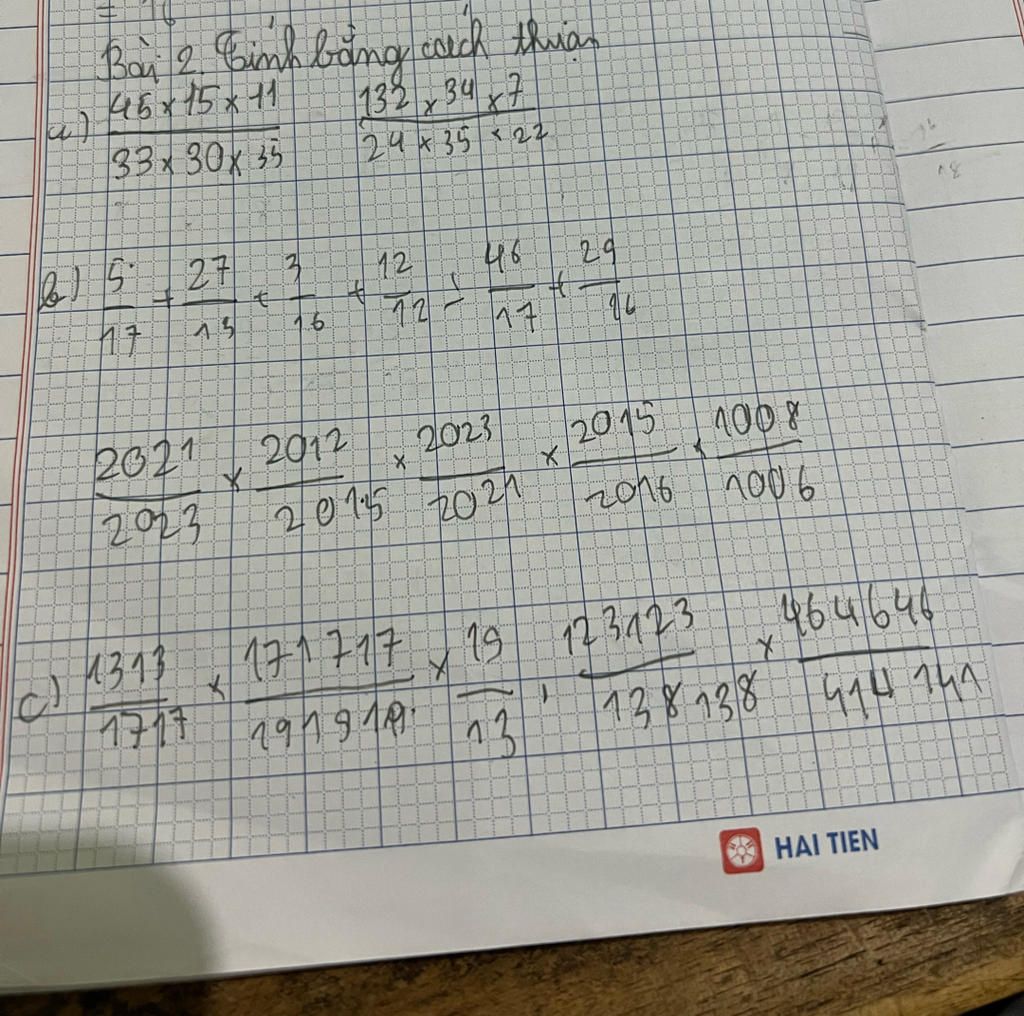 Bài 2. Tính bằng cách thuận
a) 45 × 15 × 11 / 33 × 30 × 35   132 × 34 × 7 / 24 × 35 × 22
b) 5/17 + 27/13 + 3/16 + 12/12 + 46/17 + 29/16
2021/2023 × 2012/2015 × 2023/2021 × 2015/2016 × 1008/1006
c) 1313/1717 × 171717/191919 × 19/13 , 123123/138138 × 464646/414141
HAI TIEN